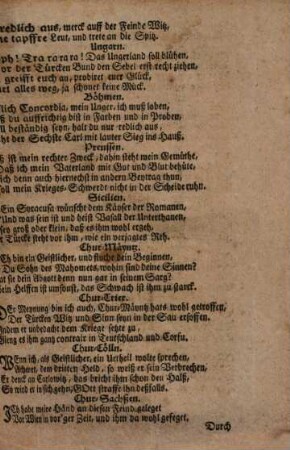 redlich aus, merck auff der Feinde Witz,
ne tapffre Leut, und trete an die Spitz.
Ungarn.
ph! Tra ra ra ro! Das Ungerland soll blühen,
or der Türcken Bund den Sebel erst recht ziehen,
greifft euch an, probiret euer Glück,
et alles weg, ja schonet keine Mück.
Böhmen.
lich Concordia, mein Unger, ich muß loben,
ß du auffrichtig bist in Farben und in Proben,
ll beständig seyn, halt du nur redlich aus,
ht der Sechste Carl mit lauter Sieg ins Hauß.
Preussen.
ß ist mein rechter Zweck, dahin steht mein Gemüthe,
Daß ich mein Vaterland mit Gut und Blut behüte,
ich denn auch hiernechst in andern Beytrag thun,
oll mein Krieges-Schwerdt nicht in der Scheide ruhn.
Sicilien.
Ein Siracusa wünscht dem Käyser der Romanen,
Und was sein ist und heist Vasall der Unterthanen,
sey groß oder klein, daß es ihm wohl ergeh,
r Türck steht vor ihm, wie ein verjagtes Reh.
Chur-Mäyntz.
Ich bin ein Geistlicher, und fluche dein Beginnen,
Du Sohn des Mahomets, wohin sind deine Sinnen?
at sie dein Abgott denn nun gar in seinem Sarg?
ein Helffen ist umsonst, das Schwach ist ihm zu starck.
Chur-Trier.
Der Meynung bin ich auch, Chur-Mäyntz hats wohl getroffen,
Der Türcken Witz und Sinn seyn in der Sau ersoffen,
indem er unbedacht dem Kriege setzte zu
Gieng es ihm gantz contrair in Teutschland und Corfu.
Chur-Cölln.
Wenn ich, als Geistlicher, ein Urtheil wolte sprechen,
dem dritten Held, so weiß er sein Verbrechen,
Er denck an Carlowitz, das bricht ihm schon den Halß,
So wird es sich schgehn, GOtt straffe ihn desfalls.
Chur-Sachsen.
Ich habe meine Händ an diesen Feind geleget
Vor Wien in vor'ger Zeit, und ihm da wohl gefeget,
Durch